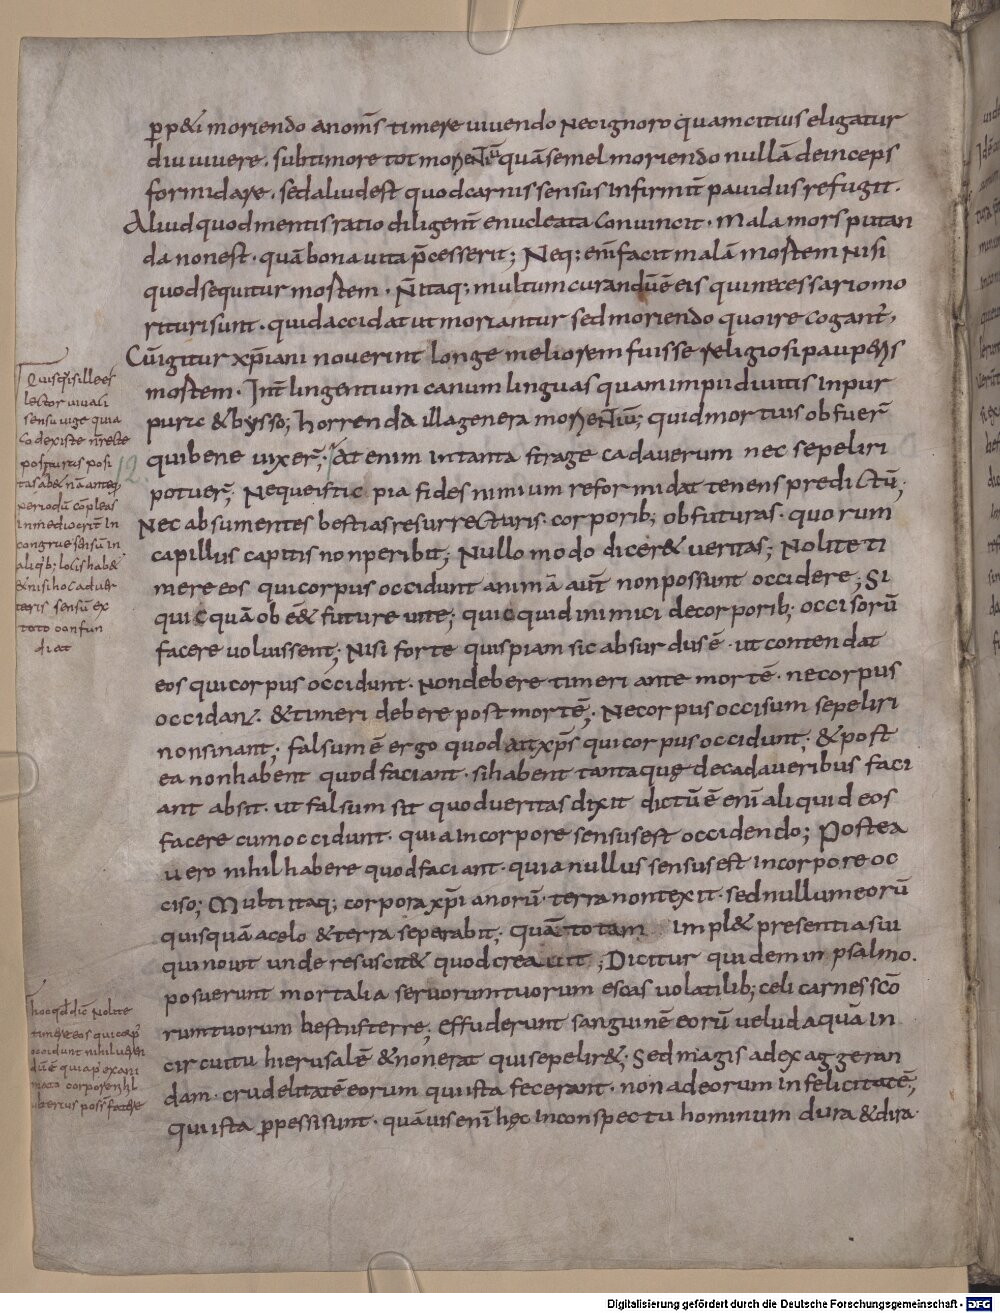 ꝑp&i moriendo anom̄s timere uiuendo Nec ignoro quam citius eligatur
diu uiuere. sub timore tot morientiū quā semel moriendo nullā deinceps
formidare. sed aliud est quod carnis sensus Infirmit̄ pauidus refugit.
Aliud quod mentis ratio diligent̄ enucleata Conuincit. Mala mors putan
da non est. quā bona uita p̄cesserit; Neq; enī facit malā mortem Nisi
quod sequitur mortem. N̄ itaq; multum curandū ē eis qui necessario mo
rituri sunt. quid accidat ut moriantur sed moriendo quo ire cogant̄,
Cū igitur xp̄iani nouerint longe meliorem fuisse religiosi pauperis
mortem. Int̄ lingentium canum linguas quam impii diuitis In pur
pura & bysso; horrenda illa genera mortiū; quid mortuis obfuer̄
qui bene uixer̄; At enim in tanta strage cadauerum nec sepeliri
potuer̄; Neque istic pia fides nimium reformidat tenens predictū;
Nec absumentes bestias resurrecturis. corporib; obfuturas. quorum
capillus capitis non peribit; Nullo modo dicer& ueritas; Nolite ti
mere eos qui corpus occidunt animā aut̄ non possunt occidere; Si
quicquā obēē& future uite; quicquid inimici de corporib; occisorū
facere uoluissent; Nisi forte quispiam sic absurdus ē. ut contendat
eos qui corpus occidunt. Non debere timeri ante mortē. ne corpus
occidant. & timeri debere post mortē; Ne corpus occisum sepeliri
non sinant; falsum ē ergo quod ait xp̄s qui corpus occidunt; & post
ea non habent quod faciant. si habent tanta quę de cadaueribus faci
ant absit. ut falsum sit quod ueritas dixit dictū ē enī aliquid eos
facere cum occidunt. quia in corpore sensus est occidendo; Postea
uero nihil habere quod faciant. quia nullus sensus est in corpore oc
ciso; Multi itaq; corpora xp̄ianorū. terra non texit. sed nullum eorū
quisquā a celo & terra separabit; quā totam impl& presentia sui
qui nouit unde resuscit& quod creauit; Dicitur quidem in psalmo.
posuerunt mortalia seruorum tuorum escas uolatilib; celi carnes scō
rum tuorum bestiis terre; Effuderunt sanguinē eorū uelud aquā in
circuitu hierusalē & non erat qui sepelir&; Sed magis ad exaggeran
dam. crudelitatē eorum qui ista fecerunt. non ad eorum infelicitatē;
qui ista ꝑpessi sunt. quāuis enī hęc in conspectu hominum dura & dira.
lector uiuaci
sensu uige quia
Codex iste n̄ recte
diat
hoc qd̄ dic̄ Nolite
timere eos qui corp̄
occidunt nihil
Digitalisierung gefördert durch die Deutsche Forschungsgemeinschaft - DFG